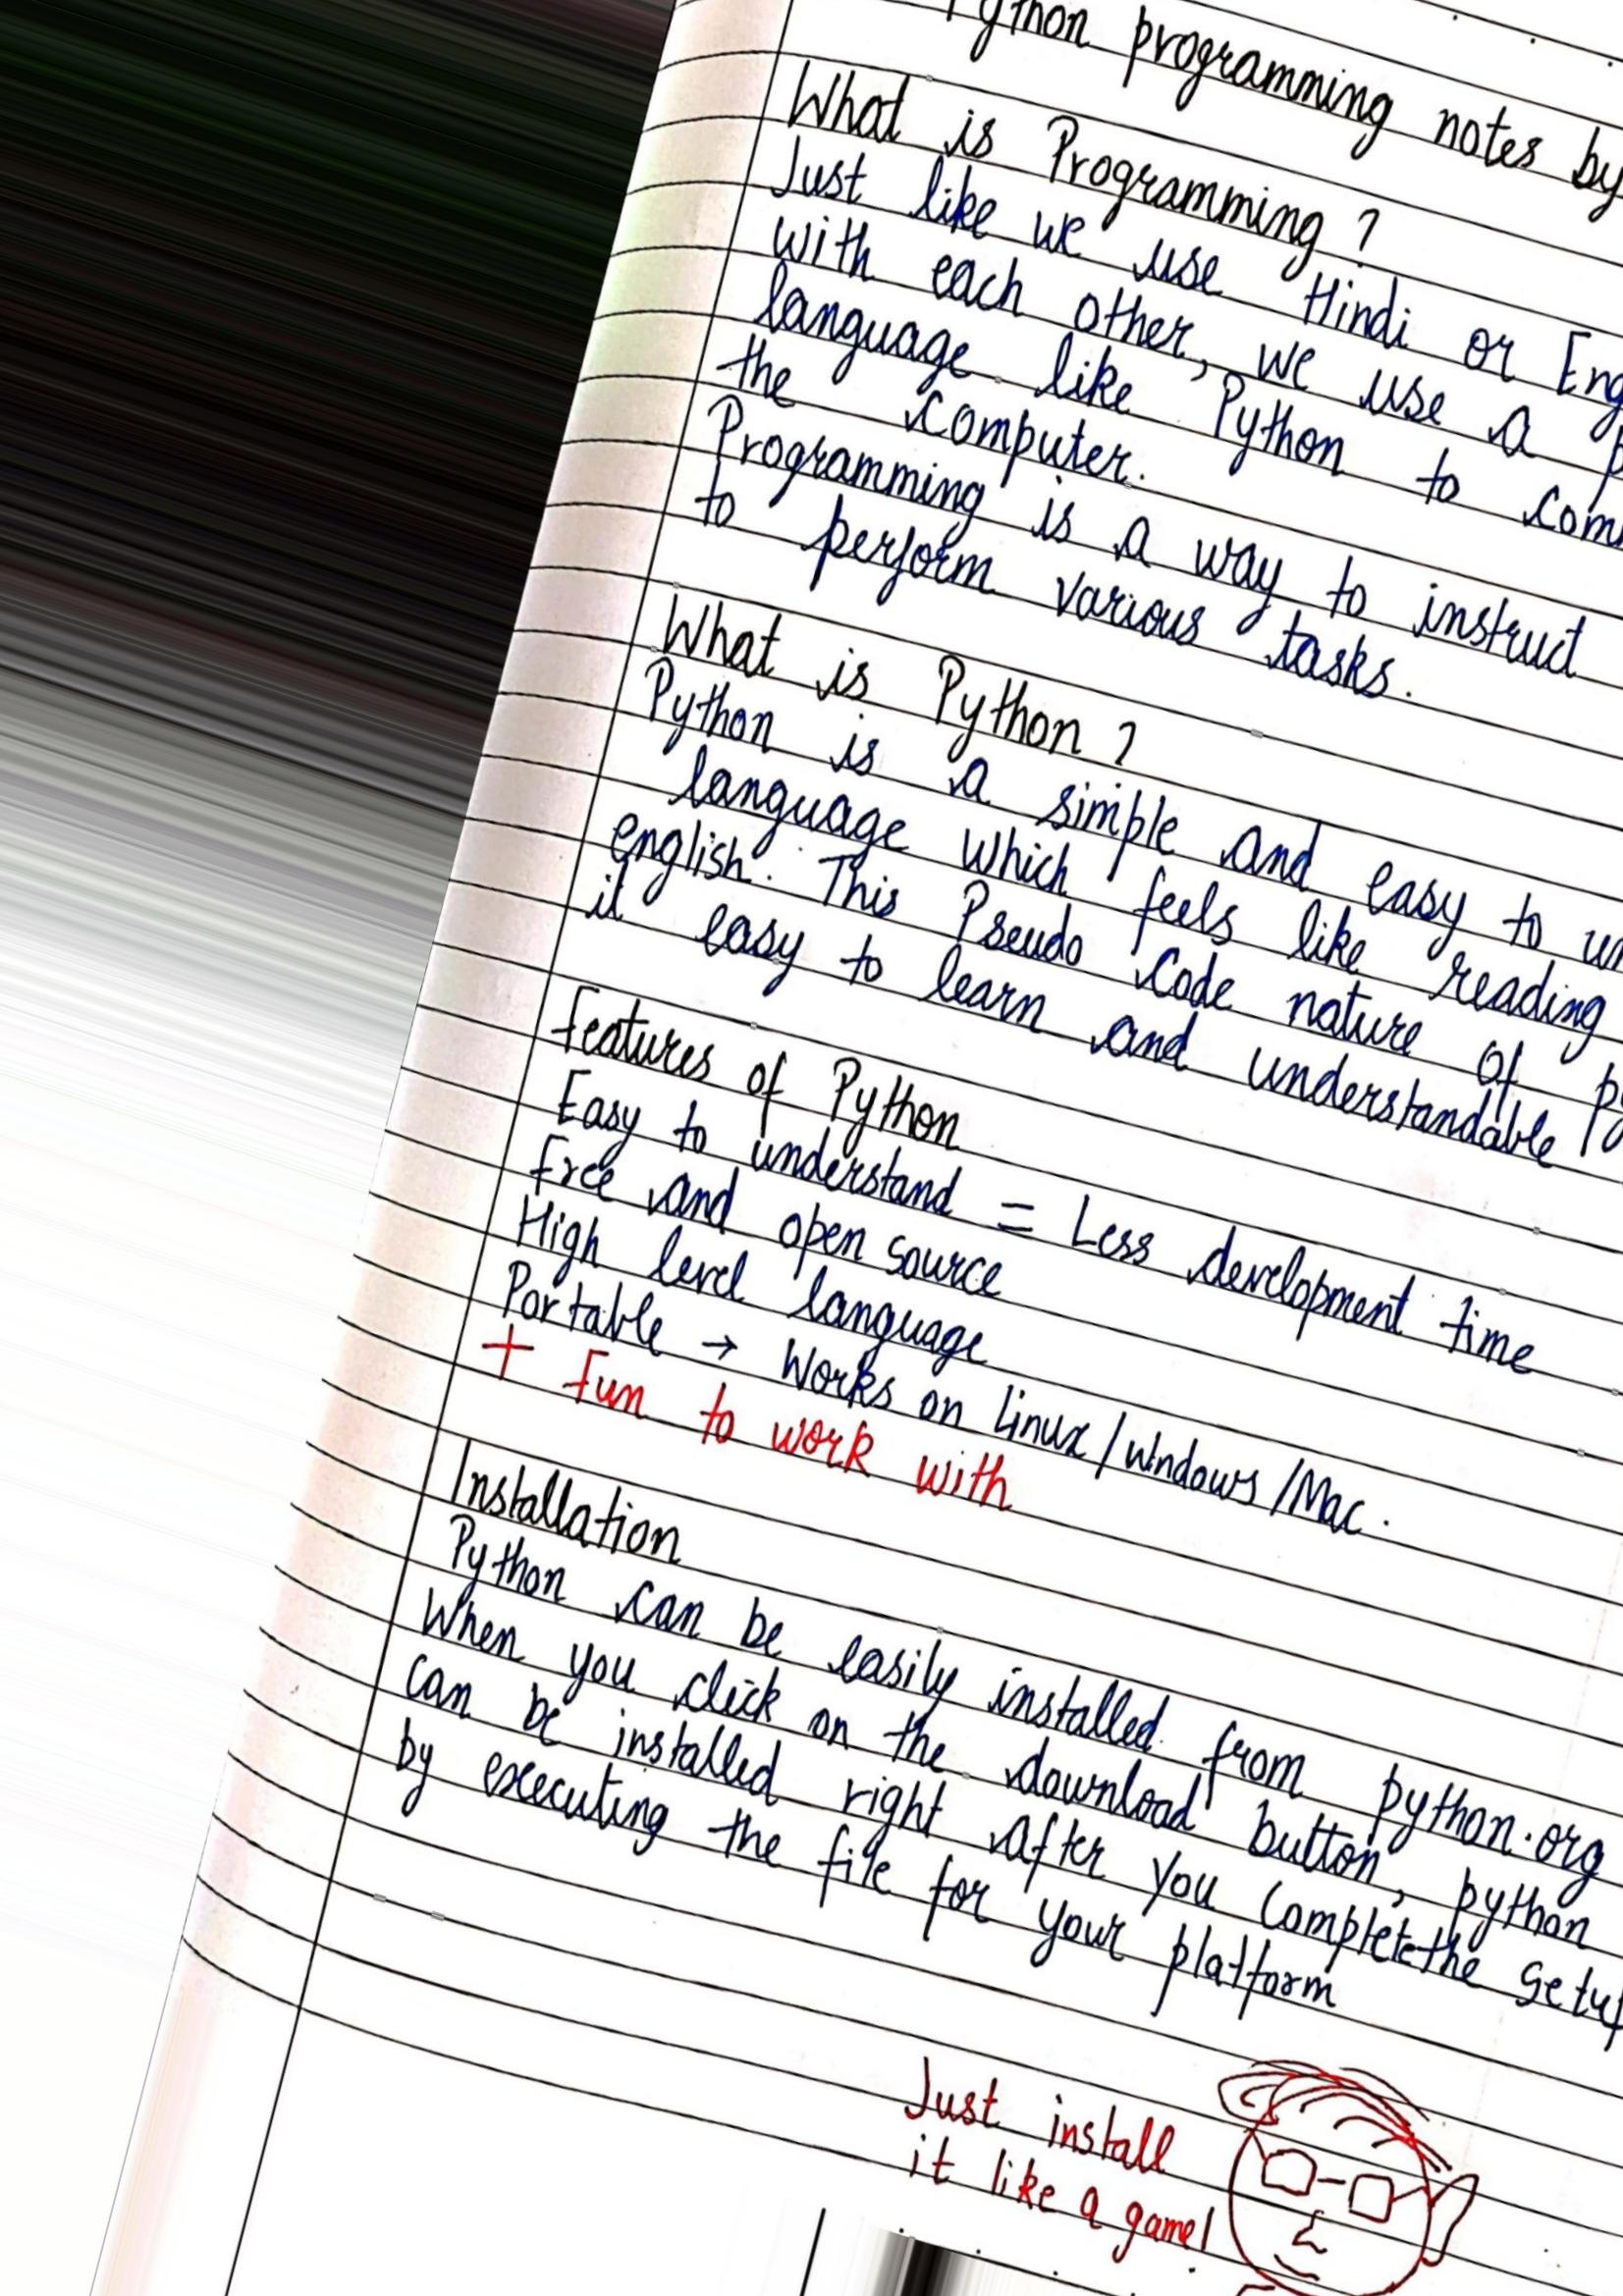 Python programming notes by
What is Programming ?
Just like we use Hindi or Eng
with each other, we use a p
language like Python to com
the computer.
Programming is a way to instruct
to perform various tasks.
What is Python ?
Python is a simple and easy to un
language which feels like reading
english. This Pseudo code nature of py
it easy to learn and understandable
Features of Python
Easy to understand = Less development time
Free and open source
High level language
Portable → Works on Linux / Windows / Mac.
+ Fun to work with
Installation
Python can be easily installed from python.org
When you click on the download button, python
can be installed right after you complete the setup
by executing the file for your platform
Just install
it like a game!